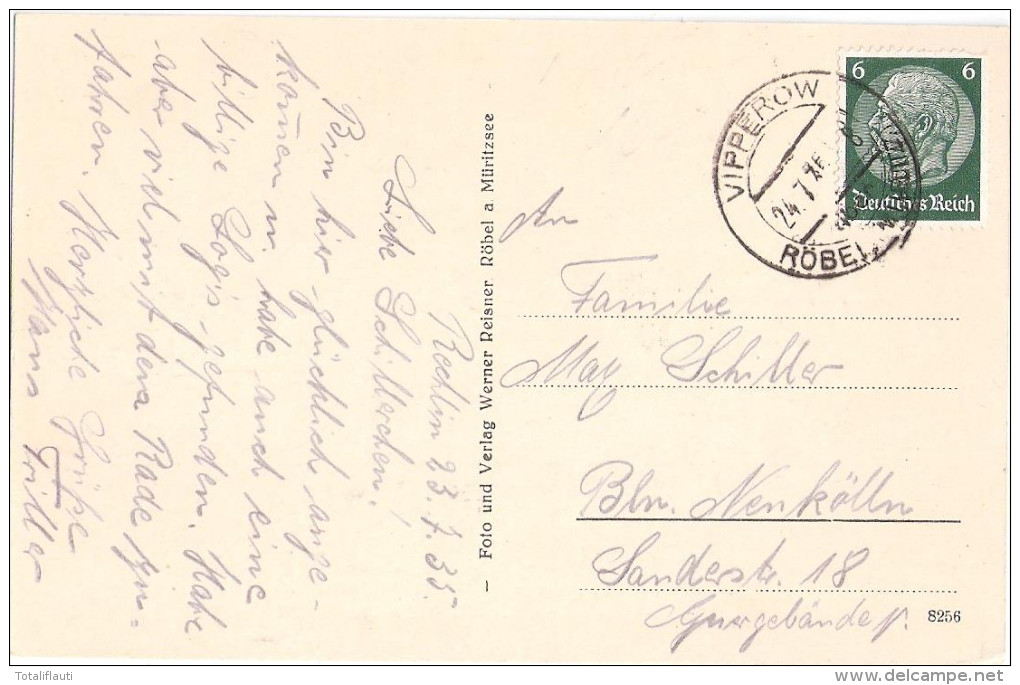 Rechlin 23.7.35.
Liebe Schillerchen!
Bin hier glücklich ange-
kom̄en u. habe auch eine
billige Logis gefunden. Habe
aber viel mit dem Rade zu
fahren. Herzliche Grüße
Hans Triller
– Foto und Verlag Werner Reisner Röbel a Müritzsee
6 6
Deutsches Reich
VIPPEROW
24.7.
RÖBEL
An
Familie
Max Schiller
Bln. Neukölln
Sanderstr. 18
Quergebäude p.
8256
Totaliflauti
delcampe.net